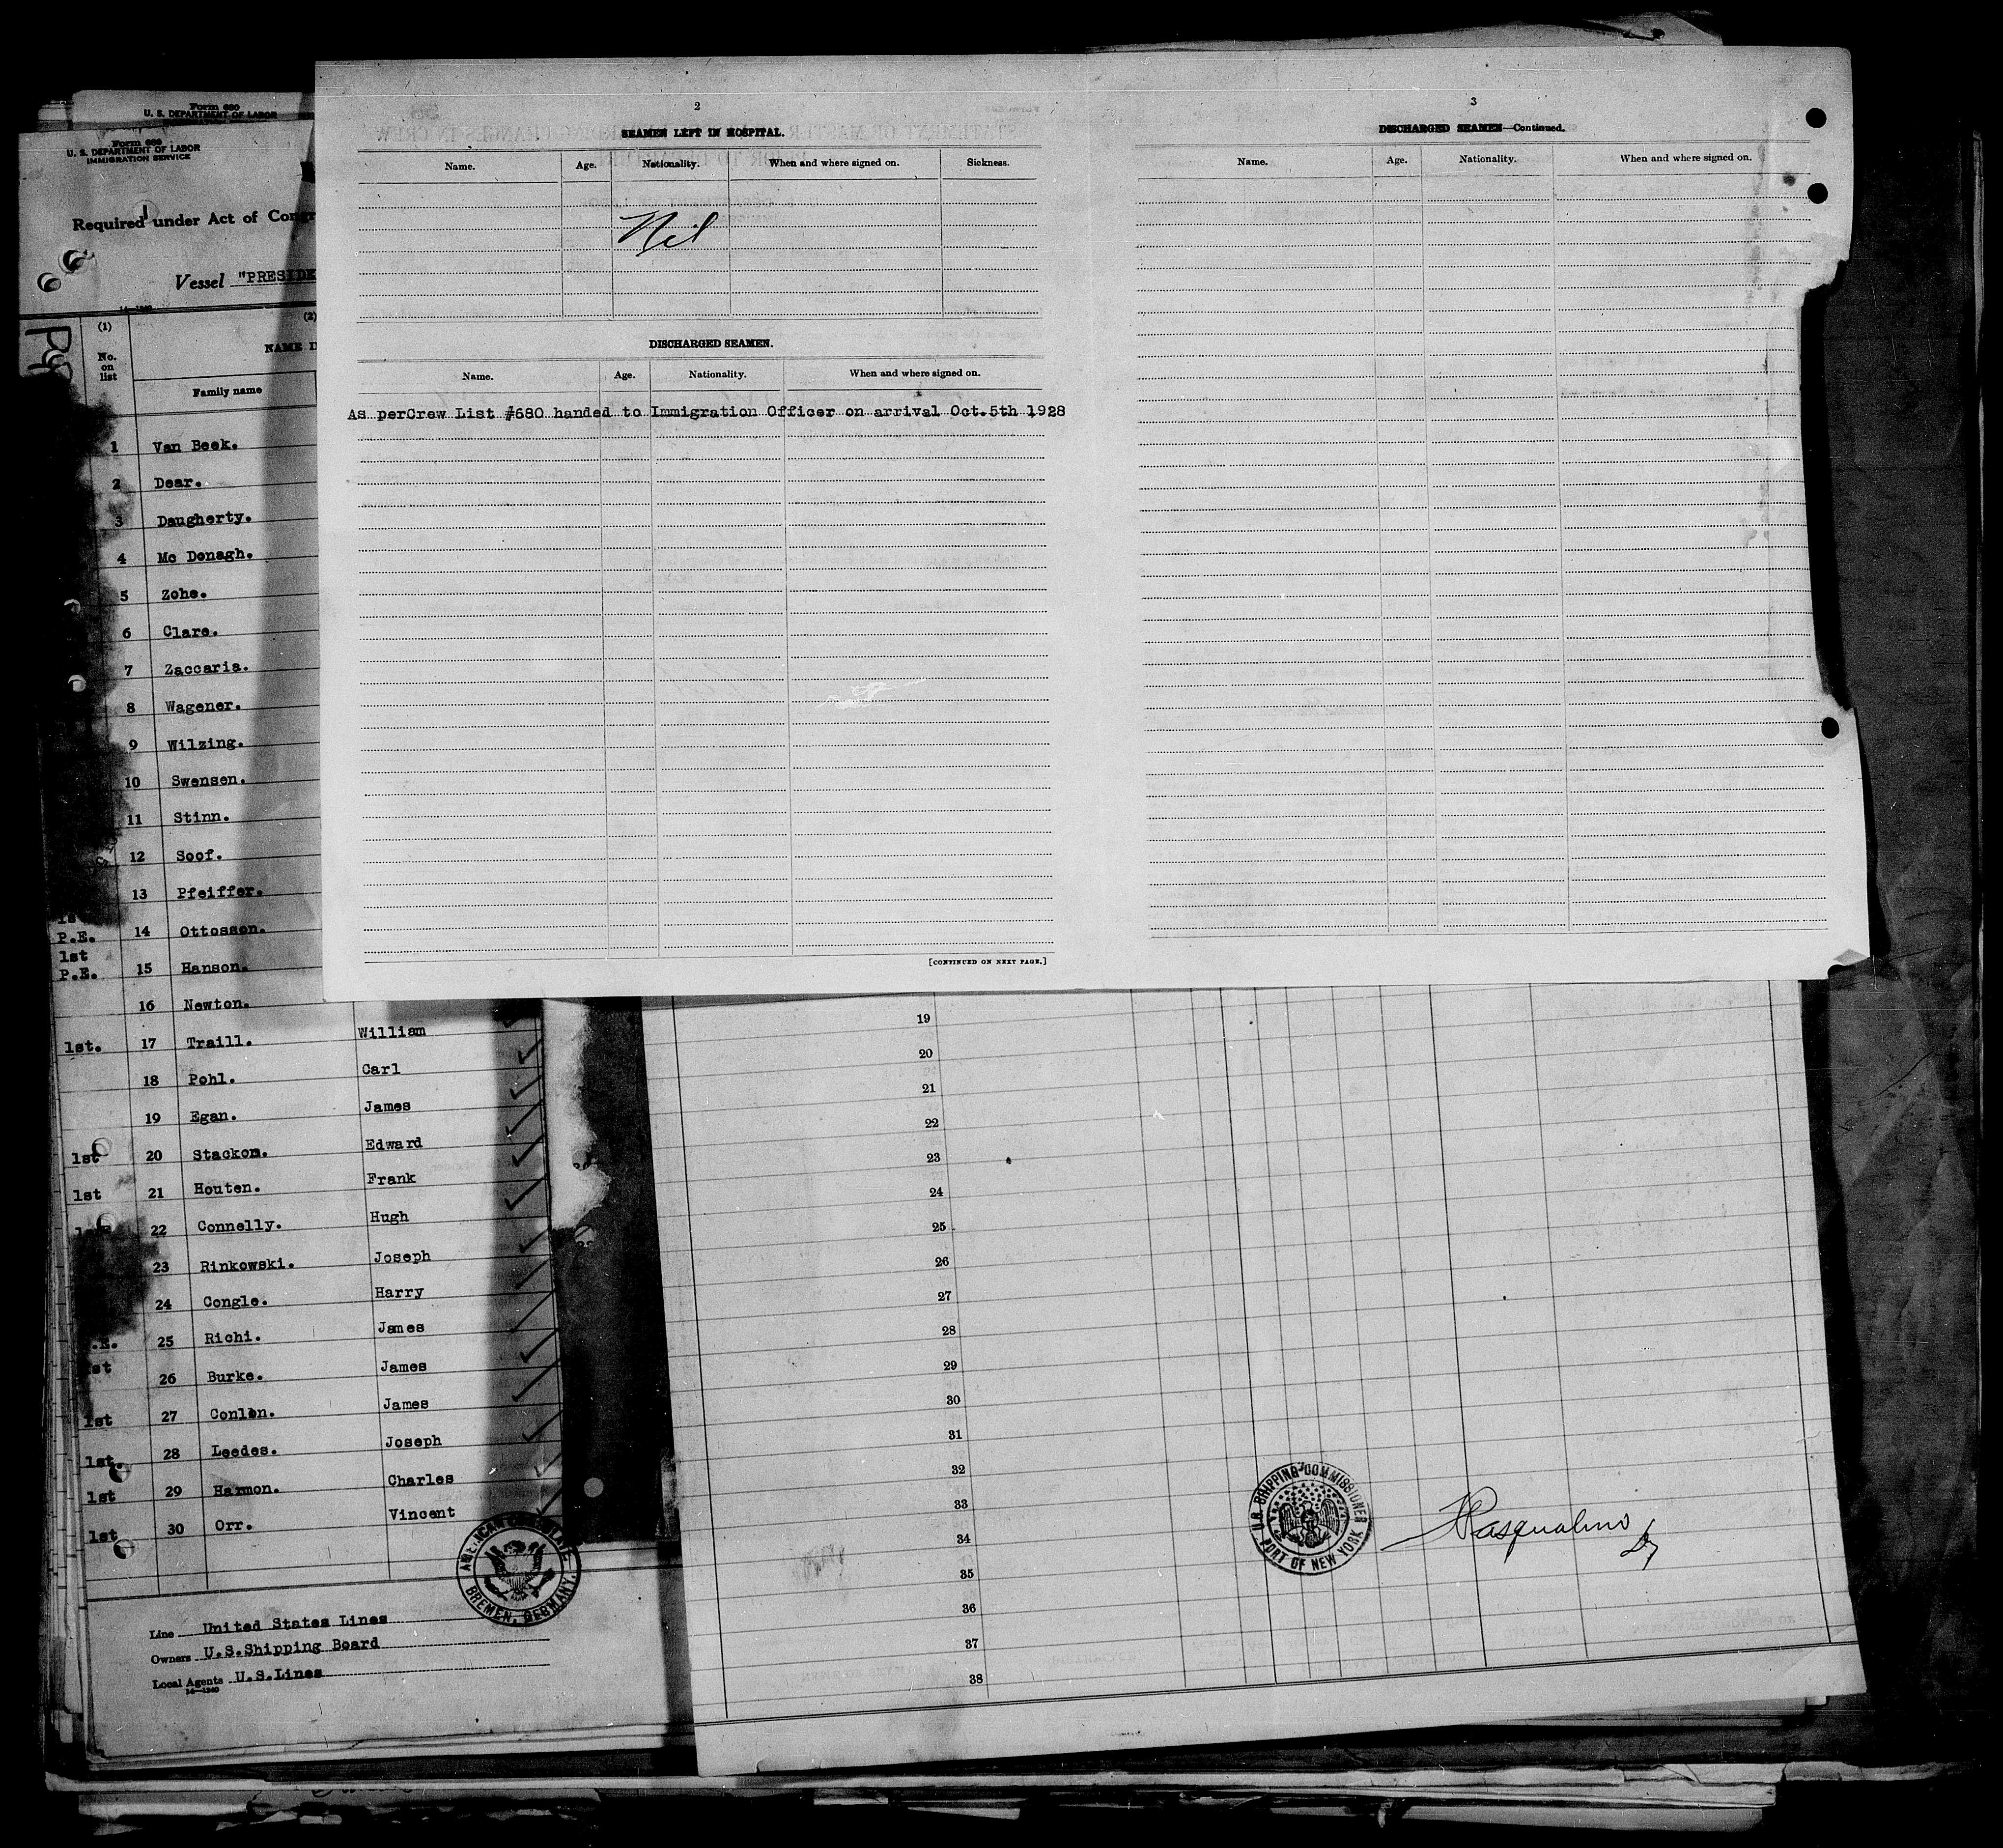 Form 680
U. S. DEPARTMENT OF LABOR
Form 680
U. S. DEPARTMENT OF LABOR
IMMIGRATION SERVICE
Required under Act of Congr
Vessel "PRESIDE
(1)
(2)
No. on list
NAME I
Family name
1 Van Beek.
2 Dear.
3 Daugherty.
4 Mc Donagh.
5 Zohe.
6 Clare.
7 Zaccaria.
8 Wagener.
9 Wilzing.
10 Swensen.
11 Stinn.
12 Soof.
13 Pfeiffer.
P.E. 14 Ottosson.
1st P.E. 15 Hanson.
16 Newton.
1st. 17 Traill. William
18 Pohl. Carl
19 Egan. James
1st 20 Stackom. Edward
1st 21 Houten. Frank
22 Connelly. Hugh
23 Rinkowski. Joseph
24 Congle. Harry
25 Richi. James
26 Burke. James
1st 27 Conlon. James
1st. 28 Leedes. Joseph
1st 29 Harmon. Charles
1st 30 Orr. Vincent
Line United States Lines
Owners U.S.Shipping Board
Local Agents U.S.Lines
14—1240
AMERICAN CONSULATE
BREMEN, GERMANY.
2
SEAMEN LEFT IN HOSPITAL.
Name. Age. Nationality. When and where signed on. Sickness.
Nil
DISCHARGED SEAMEN.
Name. Age. Nationality. When and where signed on.
As perCrew List #680 handed to Immigration Officer on arrival Oct.5th 1928
[CONTINUED ON NEXT PAGE.]
3
DISCHARGED SEAMEN—Continued.
Name. Age. Nationality. When and where signed on.
19
20
21
22
23
24
25
26
27
28
29
30
31
32
33
34
35
36
37
38
U.S. SHIPPING COMMISSIONER
PORT OF NEW YORK
Pasqualino